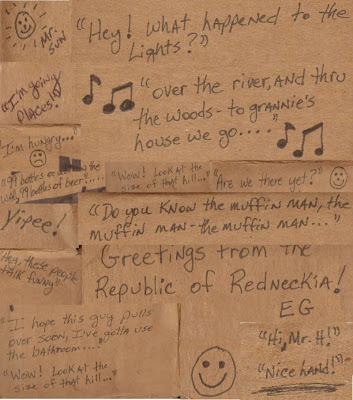 Mr. Sun
"Hey! What happened to the
Lights?"
"I'm going
Places!!"
"over the river, AND thru
the woods - to grannie's
house we go...."
"I'm hungry..."
"99 bottles the
wall, 99 bottles of beer!.....
"Wow! Look at the
size of that hill..."
"Are we there yet?"
Yipee!
"Do you know the muffin man, the
muffin man - the muffin man..."
"Hey, these people
talk funny!"
Greetings from the
Republic of Redneckia!
EG
"I hope this guy pulls
over soon, I've gotta use
the bathroom...."
"Hi, Mr. H!"
"Wow! Look at the
size of that hill..."
"Nice hand!"